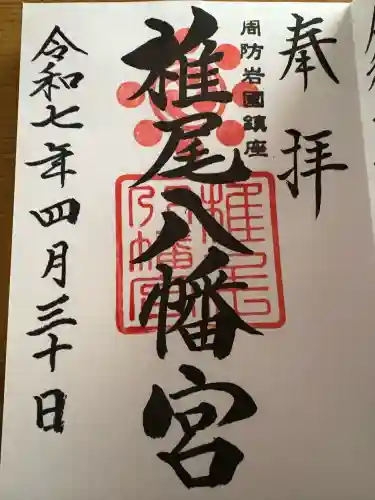 奉拝
周防岩國鎮座
椎尾八幡宮
椎尾八幡宮
令和七年四月三十日